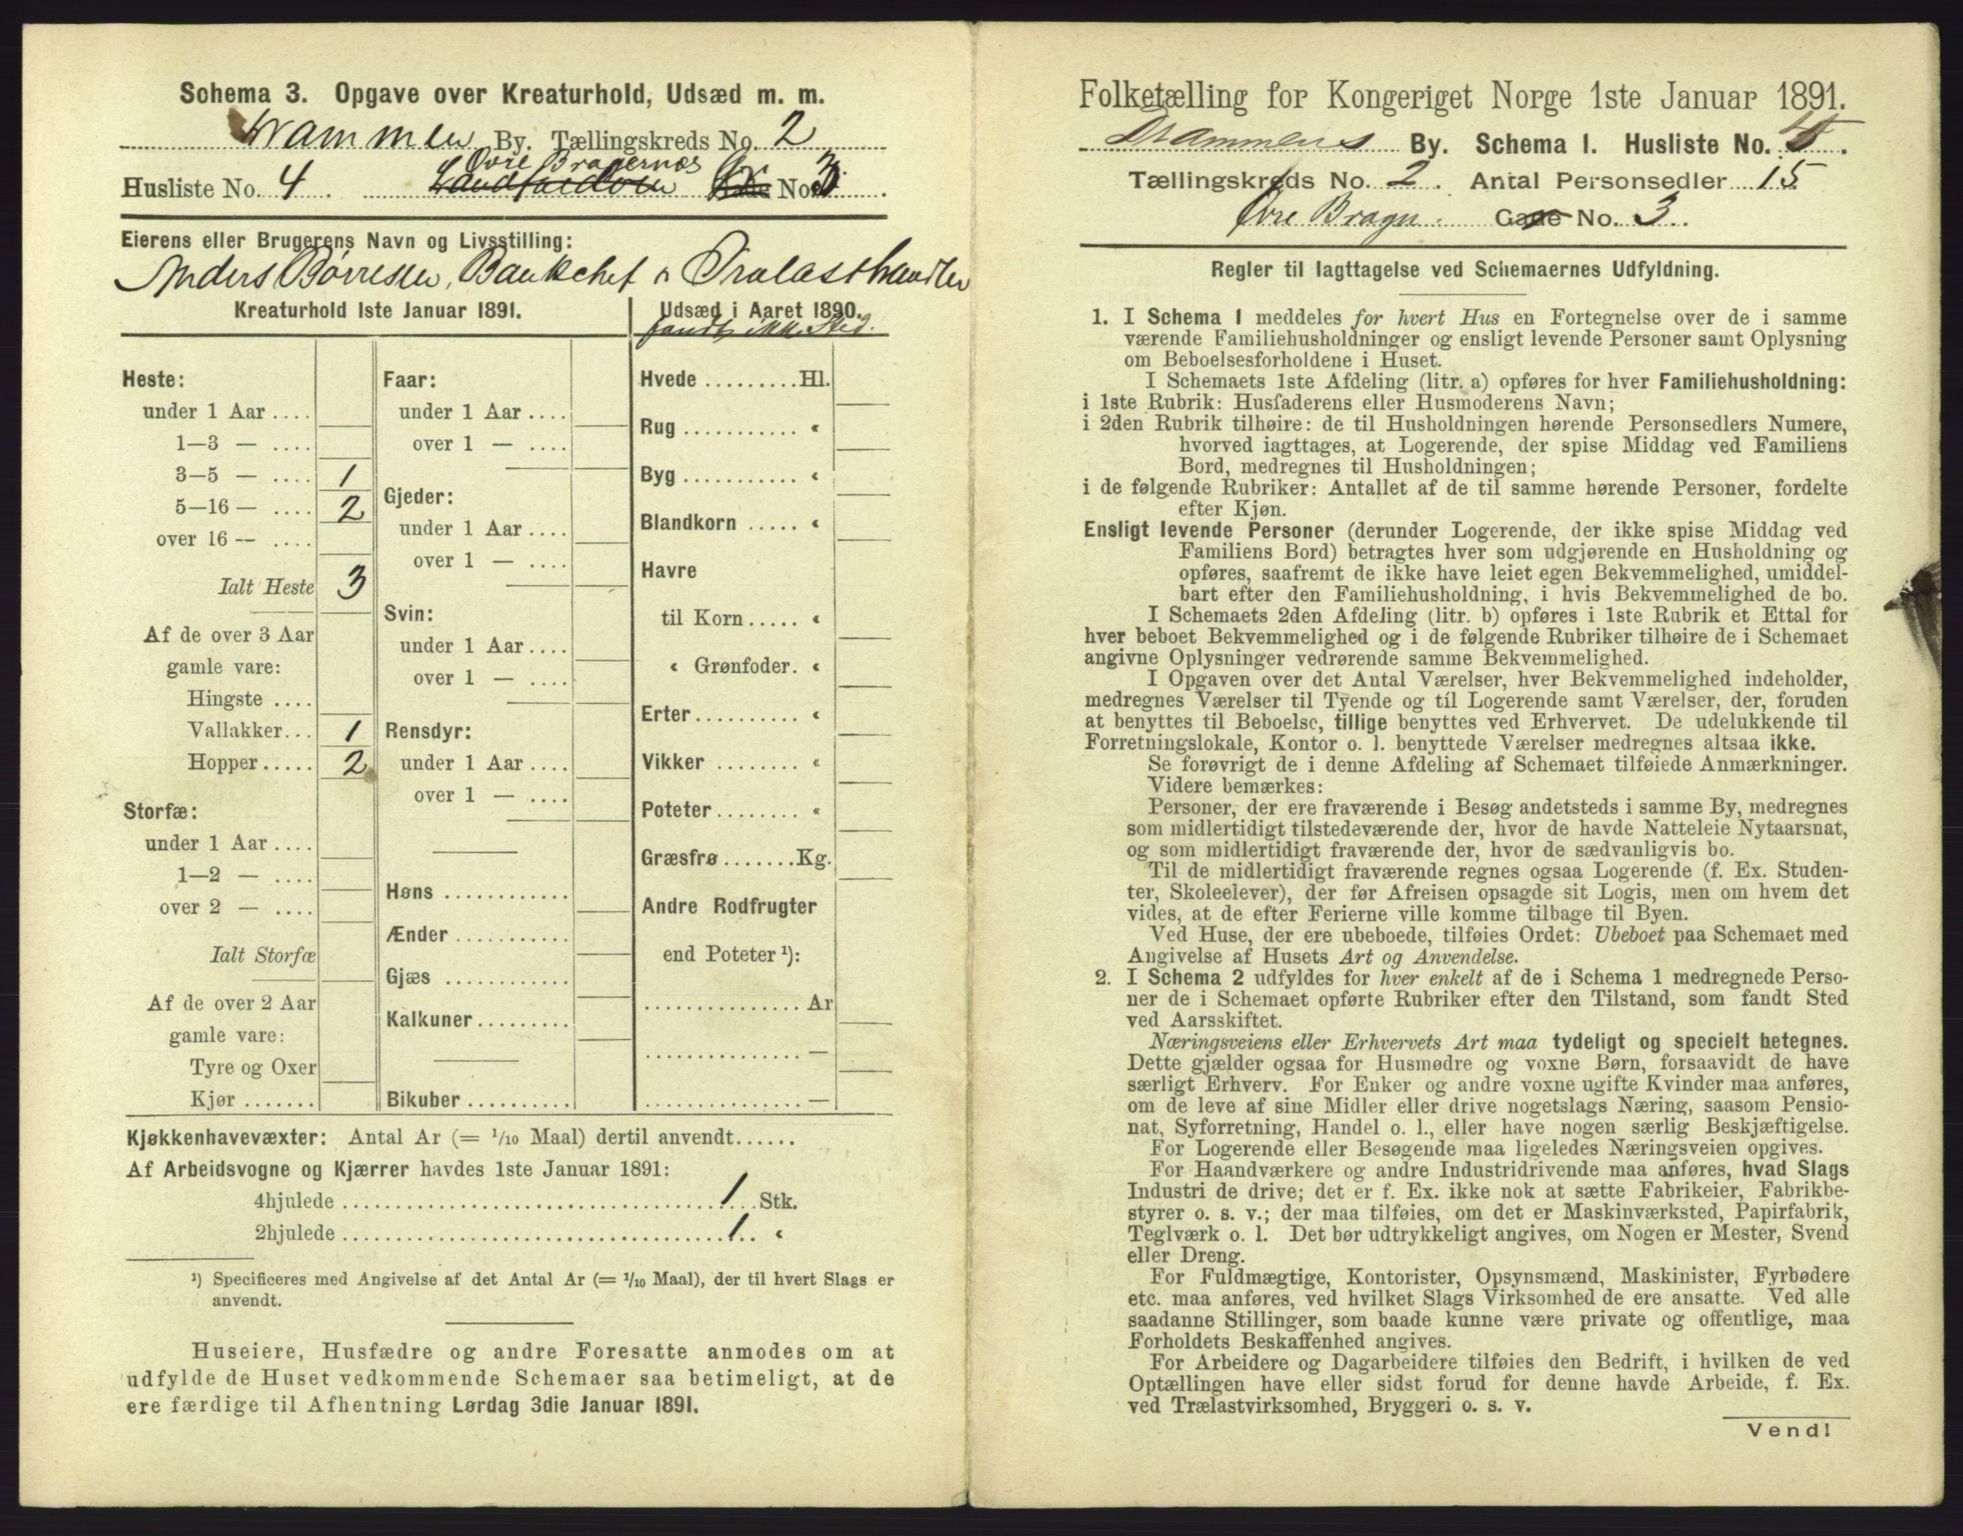 Schema 3. Opgave over Kreaturhold, Udsæd m. m.
Drammen By. Tællingskreds No. 2
Øvre Bragernæs
Husliste No. 4 Landfaldøen Gade No. 3
Eierens eller Brugerens Navn og Livsstilling:
Anders Børresen, Bankchef & Trælasthandler
Kreaturhold 1ste Januar 1891.
Udsæd i Aaret 1890.
fandt ikke Sted.
Heste:
under 1 Aar ....
1—3 — ....
3—5 — .... 1
5—16 — .... 2
over 16 — ....
Ialt Heste 3
Af de over 3 Aar
gamle vare:
Hingste ....
Vallakker... 1
Hopper..... 2
Storfæ:
under 1 Aar ....
1—2 — ....
over 2 — ....
Ialt Storfæ
Af de over 2 Aar
gamle vare:
Tyre og Oxer
Kjør .......
Faar:
under 1 Aar ....
over 1 — ....
Gjeder:
under 1 Aar ....
over 1 — ....
Svin:
under 1 Aar ....
over 1 — ....
Rensdyr:
under 1 Aar ....
over 1 — ....
Høns ............
Ænder ...........
Gjæs ............
Kalkuner.........
Bikuber ..........
Hvede .........Hl.
Rug ........... «
Byg ........... «
Blandkorn ..... «
Havre
til Korn..... «
« Grønfoder. «
Erter.......... «
Vikker ........ «
Poteter........ «
Græsfrø .......Kg.
Andre Rodfrugter
end Poteter ¹):
............... Ar
............... —
............... —
Kjøkkenhavevæxter: Antal Ar (= 1/10 Maal) dertil anvendt......
Af Arbeidsvogne og Kjærrer havdes 1ste Januar 1891:
4hjulede ........ 1 Stk.
2hjulede ........ 1 «
¹) Specificeres med Angivelse af det Antal Ar (= 1/10 Maal), der til hvert Slags er
anvendt.
Huseiere, Husfædre og andre Foresatte anmodes om at
udfylde de Huset vedkommende Schemaer saa betimeligt, at de
ere færdige til Afhentning Lørdag 3die Januar 1891.
Folketælling for Kongeriget Norge 1ste Januar 1891.
Drammens By. Schema 1. Husliste No. 4.
Tællingskreds No. 2. Antal Personsedler 15
Øvre Bragn: Gade No. 3.
Regler til Iagttagelse ved Schemaernes Udfyldning.
1. I Schema 1 meddeles for hvert Hus en Fortegnelse over de i samme
værende Familiehusholdninger og ensligt levende Personer samt Oplysning
om Beboelsesforholdene i Huset.
I Schemaets 1ste Afdeling (litr. a) opføres for hver Familiehusholdning:
i 1ste Rubrik: Husfaderens eller Husmoderens Navn;
i 2den Rubrik tilhøire: de til Husholdningen hørende Personsedlers Numere,
hvorved iagttages, at Logerende, der spise Middag ved Familiens
Bord, medregnes til Husholdningen;
i de følgende Rubriker: Antallet af de til samme hørende Personer, fordelte
efter Kjøn.
Ensligt levende Personer (derunder Logerende, der ikke spise Middag ved
Familiens Bord) betragtes hver som udgjørende en Husholdning og
opføres, saafremt de ikke have leiet egen Bekvemmelighed, umiddel-
bart efter den Familiehusholdning, i hvis Bekvemmelighed de bo.
I Schemaets 2den Afdeling (litr. b) opføres i 1ste Rubrik et Ettal for
hver beboet Bekvemmelighed og i de følgende Rubriker tilhøire de i Schemaet
angivne Oplysninger vedrørende samme Bekvemmelighed.
I Opgaven over det Antal Værelser, hver Bekvemmelighed indeholder,
medregnes Værelser til Tyende og til Logerende samt Værelser, der, foruden
at benyttes til Beboelse, tillige benyttes ved Erhvervet. De udelukkende til
Forretningslokale, Kontor o. l. benyttede Værelser medregnes altsaa ikke.
Se forøvrigt de i denne Afdeling af Schemaet tilføiede Anmærkninger.
Videre bemærkes:
Personer, der ere fraværende i Besøg andetsteds i samme By, medregnes
som midlertidigt tilstedeværende der, hvor de havde Natteleie Nytaarsnat,
og som midlertidigt fraværende der, hvor de sædvanligvis bo.
Til de midlertidigt fraværende regnes ogsaa Logerende (f. Ex. Studen-
ter, Skoleelever), der før Afreisen opsagde sit Logis, men om hvem det
vides, at de efter Ferierne ville komme tilbage til Byen.
Ved Huse, der ere ubeboede, tilføies Ordet: Ubeboet paa Schemaet med
Angivelse af Husets Art og Anvendelse.
2. I Schema 2 udfyldes for hver enkelt af de i Schema 1 medregnede Perso-
ner de i Schemaet opførte Rubriker efter den Tilstand, som fandt Sted
ved Aarsskiftet.
Næringsveiens eller Erhvervets Art maa tydeligt og specielt betegnes.
Dette gjælder ogsaa for Husmødre og voxne Børn, forsaavidt de have
særligt Erhverv. For Enker og andre voxne ugifte Kvinder maa anføres,
om de leve af sine Midler eller drive nogetslags Næring, saasom Pensio-
nat, Syforretning, Handel o. l., eller have nogen særlig Beskjæftigelse.
For Logerende eller Besøgende maa ligeledes Næringsveien opgives.
For Haandværkere og andre Industridrivende maa anføres, hvad Slags
Industri de drive; det er f. Ex. ikke nok at sætte Fabrikeier, Fabrikbe-
styrer o. s. v.; der maa tilføies, om det er Maskinværksted, Papirfabrik,
Teglværk o. l. Det bør udtrykkeligt angives, om Nogen er Mester, Svend
eller Dreng.
For Fuldmægtige, Kontorister, Opsynsmænd, Maskinister, Fyrbødere
etc. maa anføres, ved hvilket Slags Virksomhed de ere ansatte. Ved alle
saadanne Stillinger, som baade kunne være private og offentlige, maa
Forholdets Beskaffenhed angives.
For Arbeidere og Dagarbeidere tilføies den Bedrift, i hvilken de ved
Optællingen have eller sidst forud for denne havde Arbeide, f. Ex.
ved Trælastvirksomhed, Bryggeri o. s. v.
Vend!